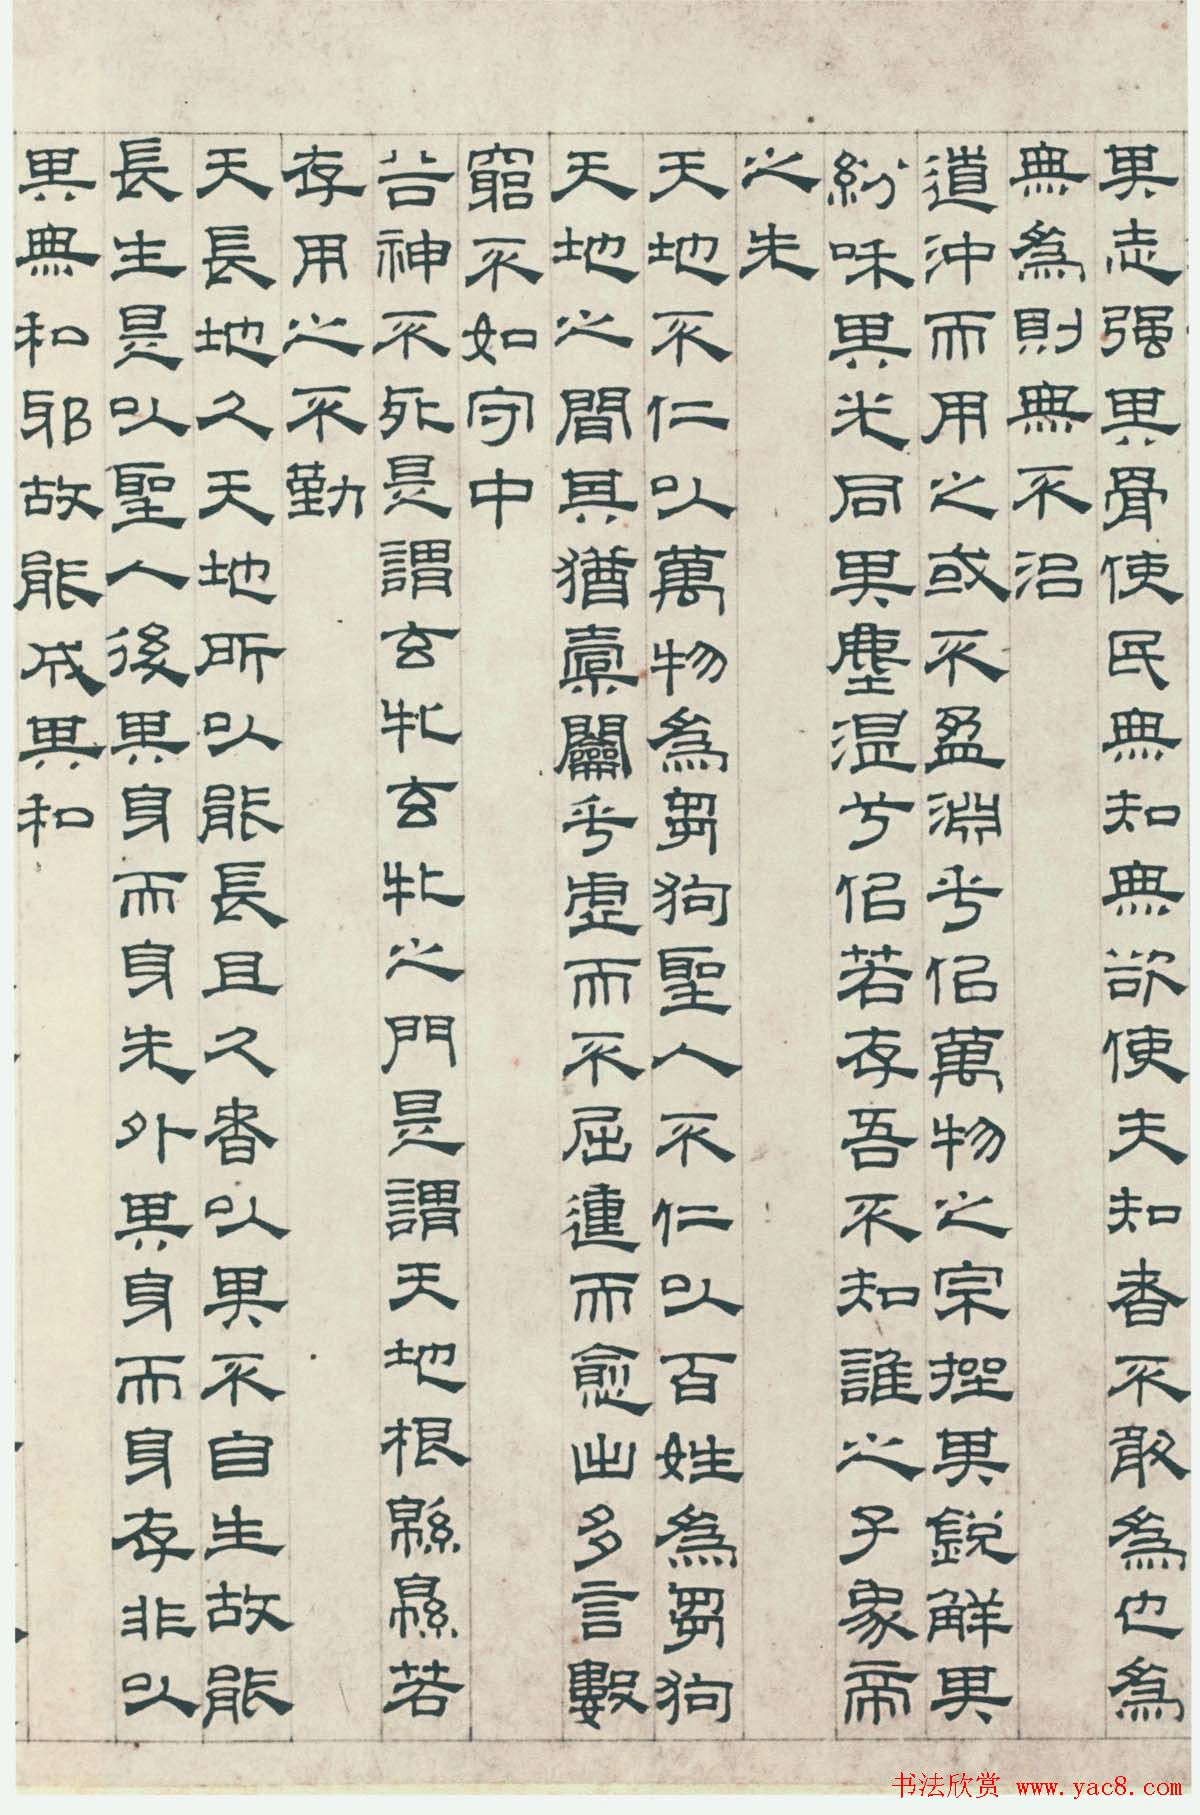 其志强其骨使民無知無欲使夫知者不敢為也為
無為則無不治
道沖而用之或不盈淵乎似萬物之宗挫其銳解其
紛咊其光同其塵湛兮似若存吾不知誰之子象帝
之先
天地不仁以萬物為芻狗聖人不仁以百姓為芻狗
天地之間其猶橐籥乎虛而不屈動而愈出多言數
窮不如守中
谷神不死是謂玄牝玄牝之門是謂天地根緜緜若
存用之不勤
天長地久天地所以能長且久者以其不自生故能
長生是以聖人後其身而身先外其身而身存非以
其無私邪故能成其私
书法欣赏 www.yac8.com